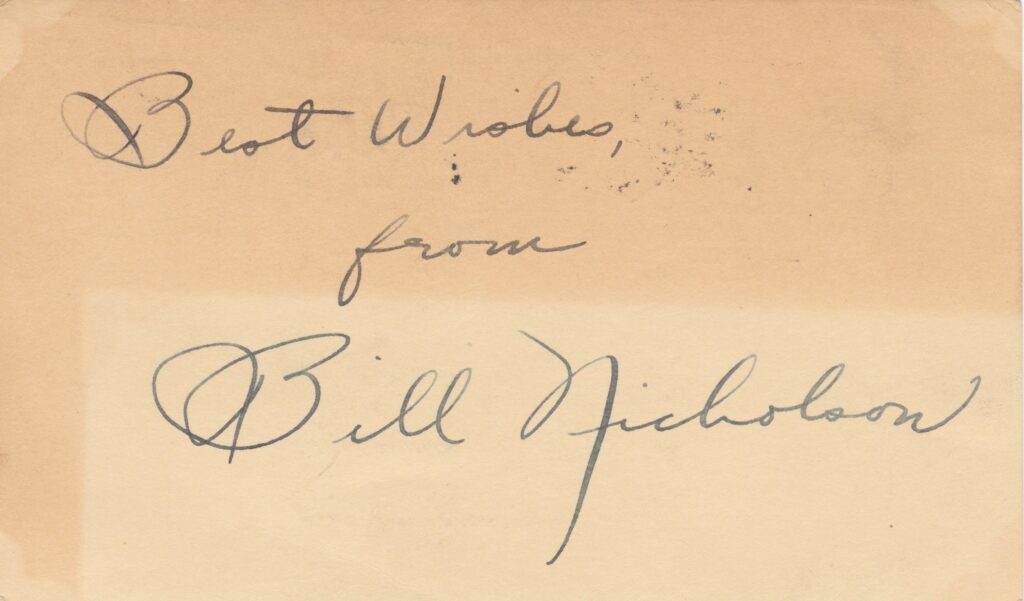 Best Wishes,
from
Bill Nicholson